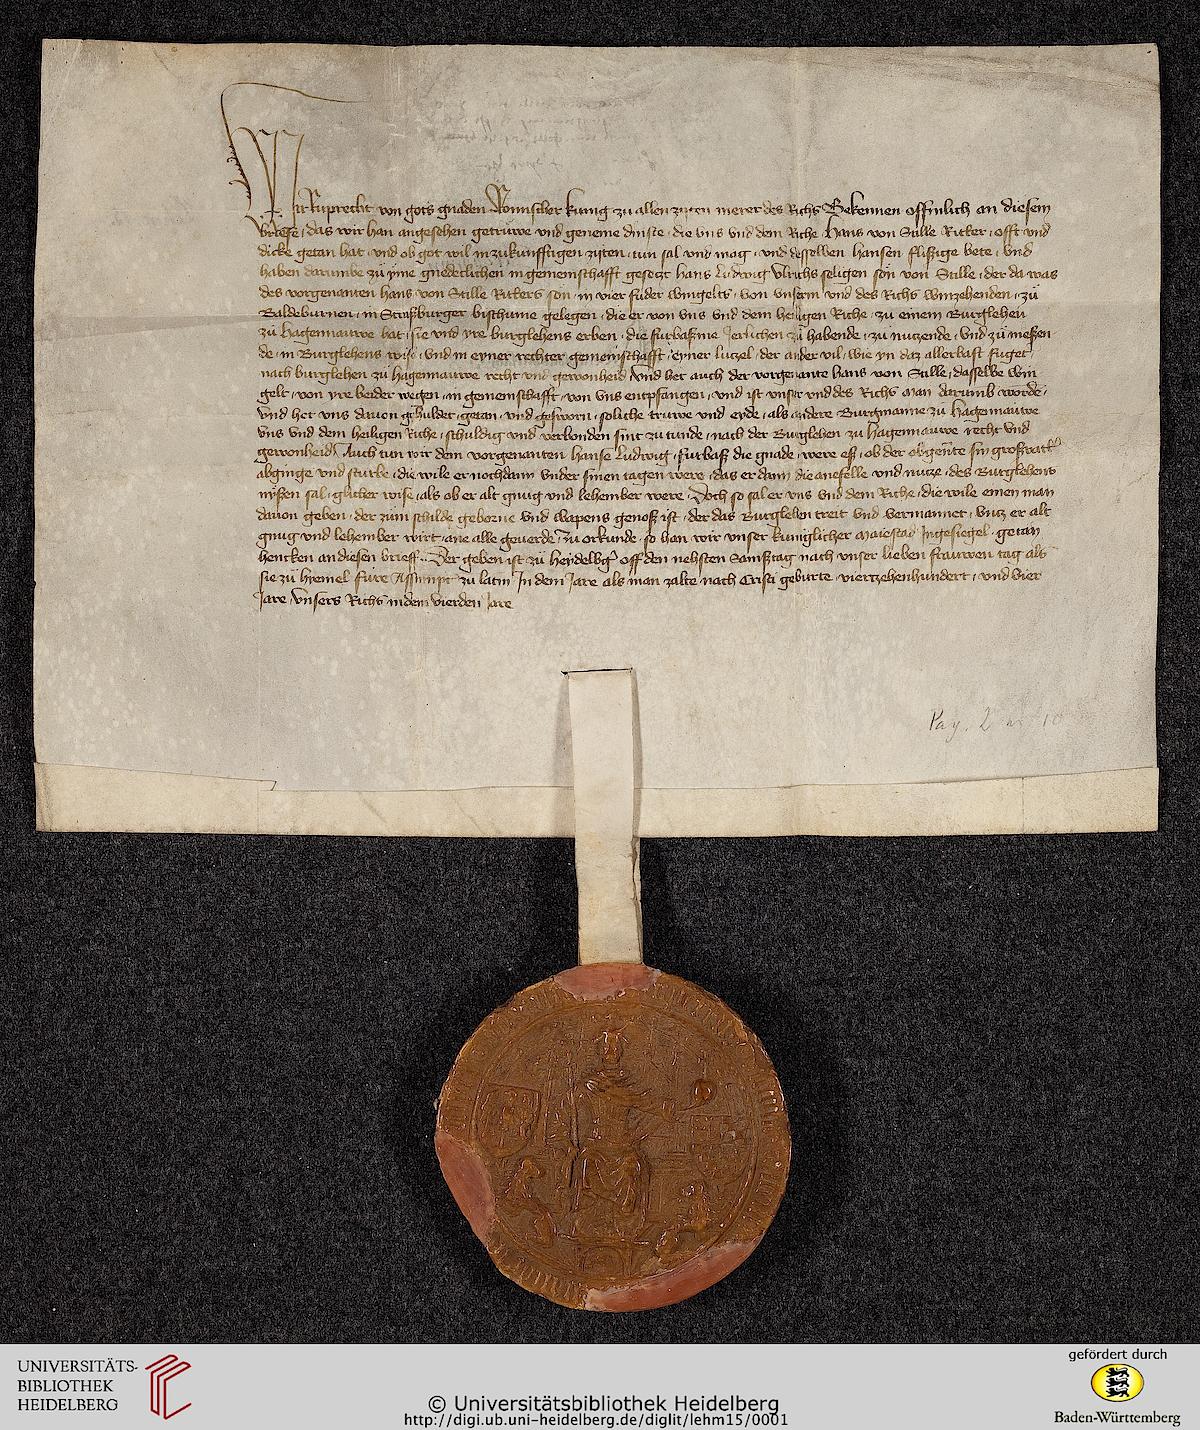 Wir Ruprecht von gots gnaden Romischer kunig zu allen zyten merer des Richs Bekennen offinlich an diesem
brieffe, das wir han angesehen getruwe und geneme dinste, die uns und dem Riche Hans von Stille Ritter, offt und
dicke getan hat, und ob got wil in zukunfftigen zyten, tun sal und mag, und desselben hansen flißige bete, und
haben darumbe zu yme gnedeclichen in gemeinschafft gesetzt hans Ludwig Ulrichs seligen son von Stille, der da was
des vorgenanten hans von Stille Ritters son, in vier fuder wingelts, von unserm und des Richs winzehenden, zü
Baldeburnen, in Straßburger bischtume gelegen, die er von uns und dem heiligen Riche, zu einem Burglehen
zü Hagennauwe hat, sie und yre burglehens erben, die furbaßme Jerlichen zü habende, zü nutzende, und zü nießen
de, in Burglehens wise, und in eyner rechter gemeinschafft, eyner lutzel, der ander vil, wie yn daz allerbast fuget,
nach burglehen zü Hagennauwe recht und gewonheid, Und het auch der vorgenante hans von Stille, dasselbe win
gelt, von yre beider wegen, in gemeinschafft, von uns entpfangen, und ist unser und des Richs man darumb worden,
und het uns davon gehuldet, getan, und gesworn, soliche truwe und eyde, als andere Burgmanne zu Hagennauwe
uns und dem heiligen Riche, schuldig und verbonden sint zu tunde, nach der Burglehen zu Hagennauwe recht und
gewonheid, Auch tun wir dem vorgenanten Hanse Ludwig, furbaß die gnade, were eß, ob der obgente sin großvatter
abginge und sturbe, die wile er nochdann under sinen tagen were, das er dann die anefelle und nutze, des Burglehens
nyßen sal, glicher wise, als ob er alt gnug und lehember were, Doch so sal er uns und dem Riche, die wile einen man
davon geben, der zum schilde geborne und wapens genoß ist, der das Burglehen treit und vermannet, untz er alt
gnug und lehember wirt, ane alle geverde, zu orkunde, so han wir unser kuniglicher maiestad Ingesiegel, getan
hencken an diesen brieff, Der geben ist zü Heydelbg off den nehsten Samßtag nach unser lieben frauwen tag als
sie zü hymel fure Assumpt zu latin In dem Jare als man zalte nach Cristi geburte viertzehenhundert, und vier
Jare, Unsers Richs in dem vierden Jare
Pag. 2
UNIVERSITÄTS-
BIBLIOTHEK
HEIDELBERG
© Universitätsbibliothek Heidelberg
http://digi.ub.uni-heidelberg.de/diglit/lehm15/0001
gefördert durch
Baden-Württemberg